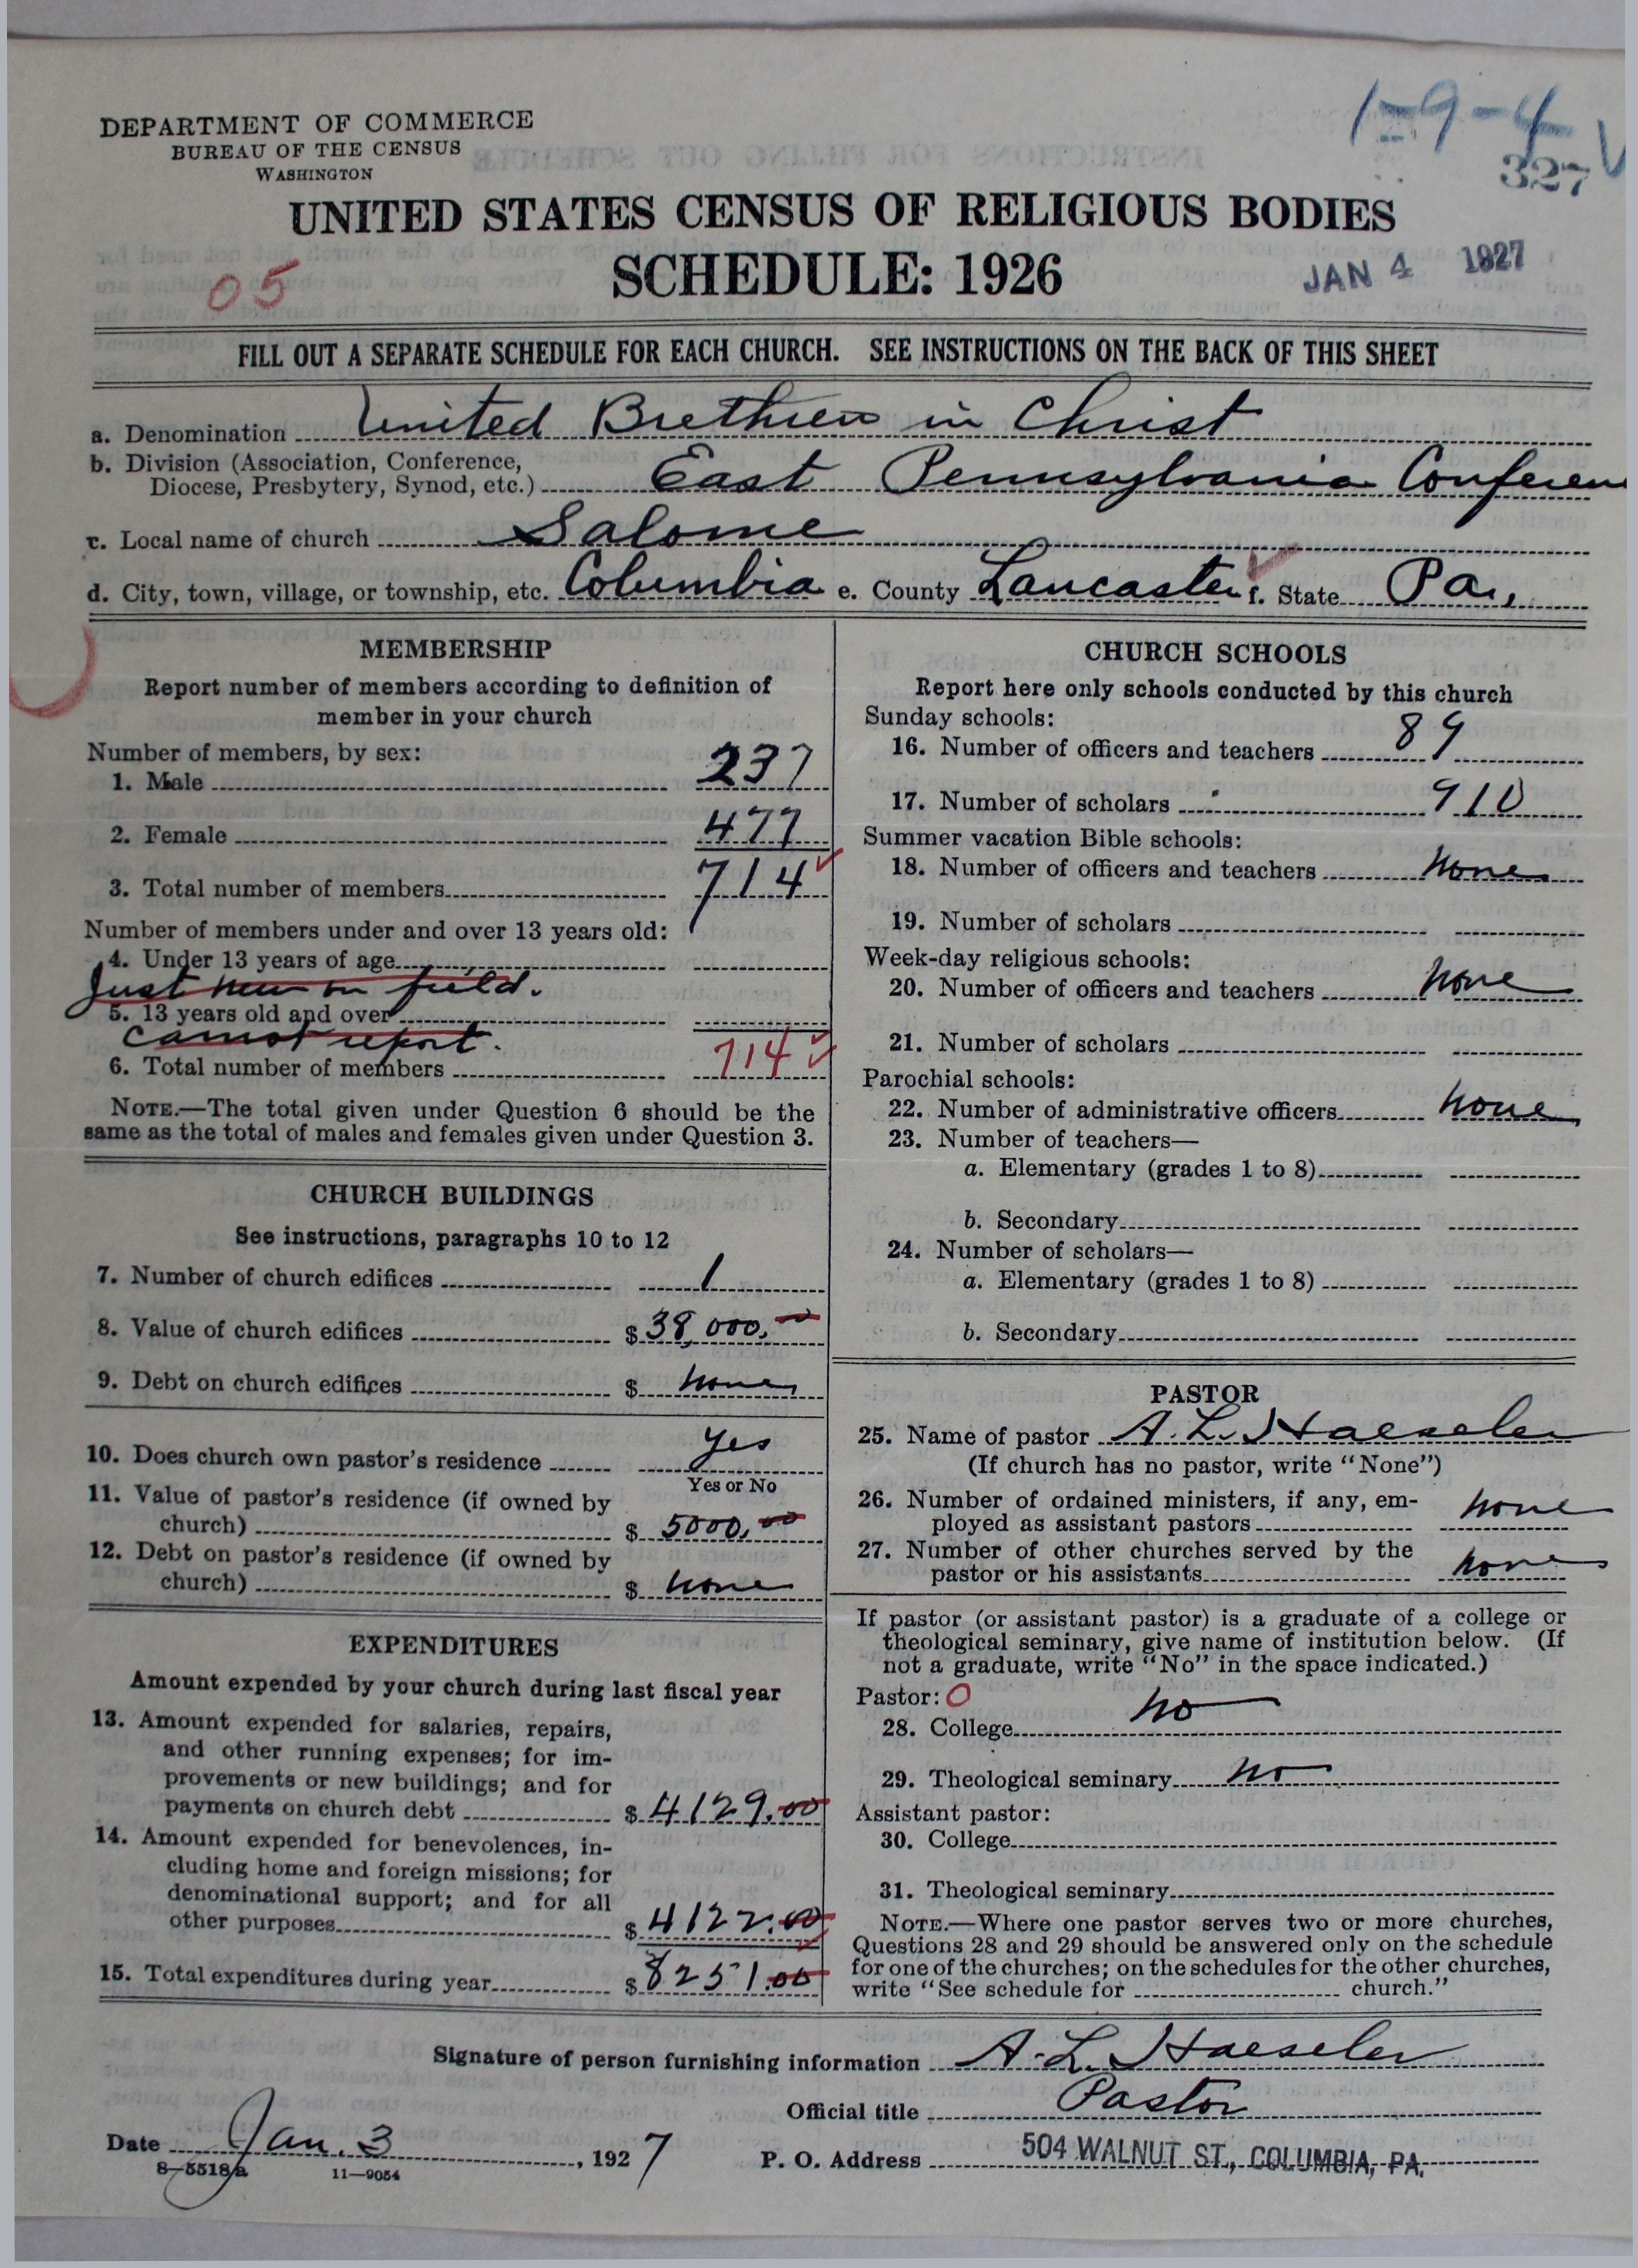 1-9-4
327
DEPARTMENT OF COMMERCE
BUREAU OF THE CENSUS
WASHINGTON
UNITED STATES CENSUS OF RELIGIOUS BODIES
SCHEDULE: 1926
05
JAN 4 1927
FILL OUT A SEPARATE SCHEDULE FOR EACH CHURCH. SEE INSTRUCTIONS ON THE BACK OF THIS SHEET
a. Denomination United Brethren in Christ
b. Division (Association, Conference,
Diocese, Presbytery, Synod, etc.) East Pennsylvania Conferen
c. Local name of church Salome
d. City, town, village, or township, etc. Columbia e. County Lancaster f. State Pa.,
MEMBERSHIP
Report number of members according to definition of
member in your church
Number of members, by sex:
1. Male 237
2. Female 477
3. Total number of members 714
Number of members under and over 13 years old:
4. Under 13 years of age
Just new on field.
5. 13 years old and over
cannot report.
6. Total number of members 714
NOTE.—The total given under Question 6 should be the
same as the total of males and females given under Question 3.
CHURCH BUILDINGS
See instructions, paragraphs 10 to 12
7. Number of church edifices 1
8. Value of church edifices $ 38,000.00
9. Debt on church edifices $ none
10. Does church own pastor's residence yes
Yes or No
11. Value of pastor's residence (if owned by
church) $ 5000.00
12. Debt on pastor's residence (if owned by
church) $ none
EXPENDITURES
Amount expended by your church during last fiscal year
13. Amount expended for salaries, repairs,
and other running expenses; for im-
provements or new buildings; and for
payments on church debt $ 4129.00
14. Amount expended for benevolences, in-
cluding home and foreign missions; for
denominational support; and for all
other purposes $ 4122.00
15. Total expenditures during year $ 8251.00
CHURCH SCHOOLS
Report here only schools conducted by this church
Sunday schools:
16. Number of officers and teachers 89
17. Number of scholars 910
Summer vacation Bible schools:
18. Number of officers and teachers none
19. Number of scholars
Week-day religious schools:
20. Number of officers and teachers none
21. Number of scholars
Parochial schools:
22. Number of administrative officers none
23. Number of teachers—
a. Elementary (grades 1 to 8)
b. Secondary
24. Number of scholars—
a. Elementary (grades 1 to 8)
b. Secondary
PASTOR
25. Name of pastor A. L. Haeseler
(If church has no pastor, write "None")
26. Number of ordained ministers, if any, em-
ployed as assistant pastors none
27. Number of other churches served by the
pastor or his assistants none
If pastor (or assistant pastor) is a graduate of a college or
theological seminary, give name of institution below. (If
not a graduate, write "No" in the space indicated.)
Pastor: 0
28. College no
29. Theological seminary no
Assistant pastor:
30. College
31. Theological seminary
NOTE.—Where one pastor serves two or more churches,
Questions 28 and 29 should be answered only on the schedule
for one of the churches; on the schedules for the other churches,
write "See schedule for church."
Signature of person furnishing information A. L. Haeseler
Official title Pastor
Date Jan. 3, 1927
P. O. Address 504 WALNUT ST., COLUMBIA, PA.
8—5518a 11—9054